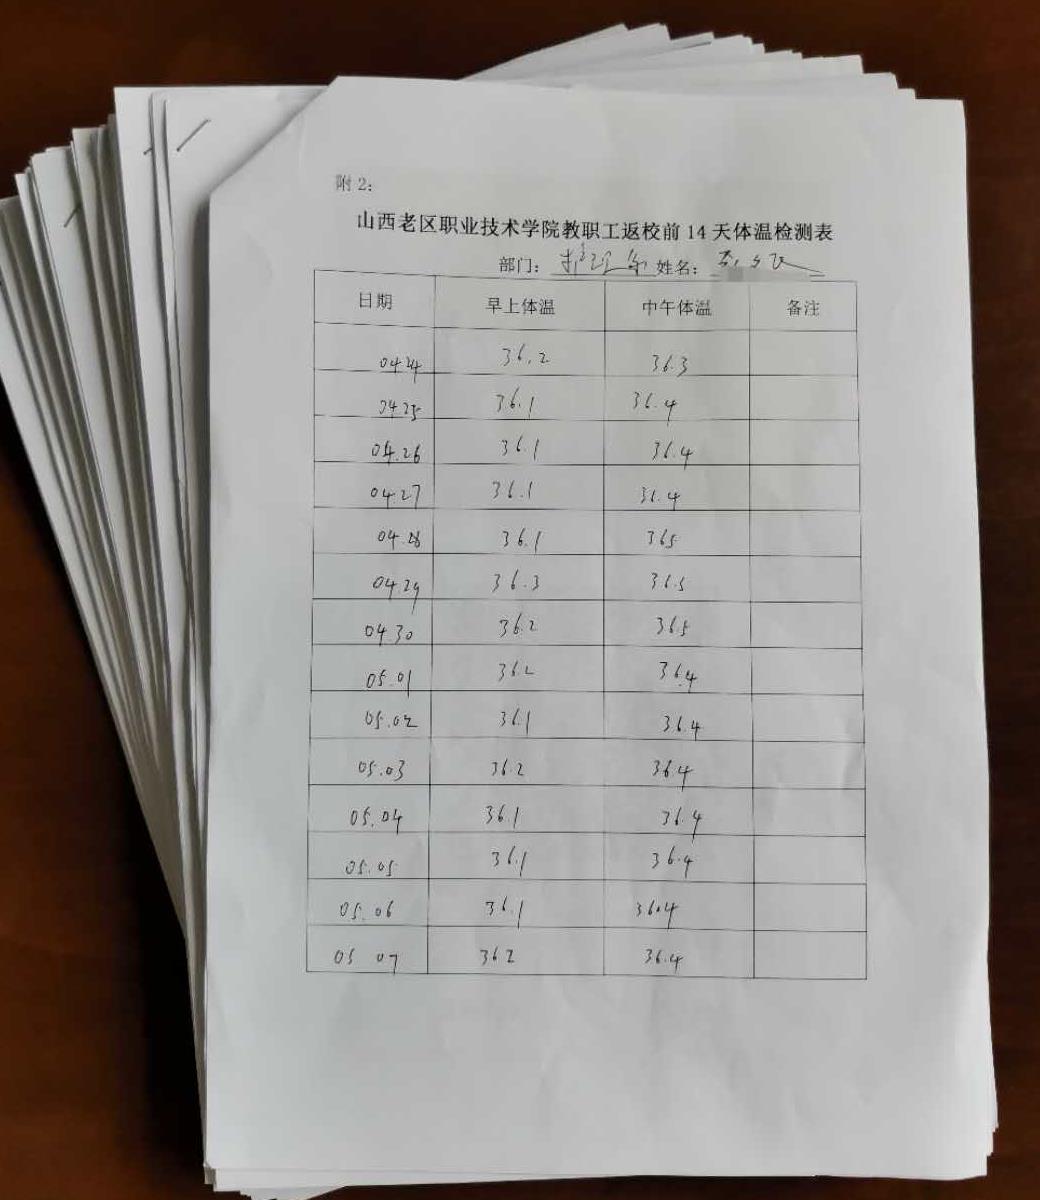 附 2:
山西老区职业技术学院教职工返校前 14 天体温检测表
部门: 护理系 姓名:
日期 早上体温 中午体温 备注
04.24 36.2 36.3
04.25 36.1 36.4
04.26 36.1 36.4
04.27 36.1 36.4
04.28 36.1 365
04.29 36.3 36.5
04.30 36.2 36.5
05.01 36.2 36.4
05.02 36.1 36.4
05.03 36.2 36.4
05.04 36.1 36.4
05.05 36.1 36.4
05.06 36.1 36.4
05 07 362 36.4